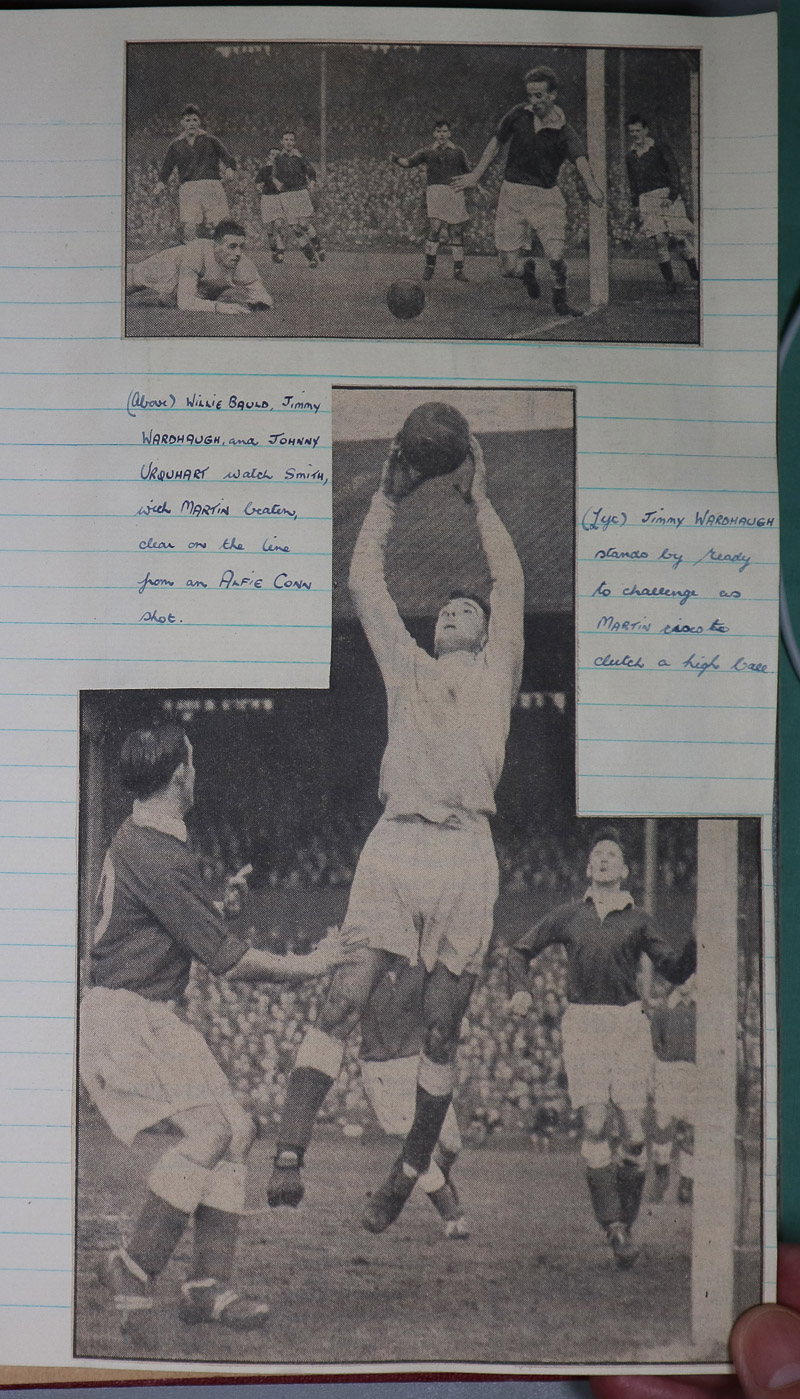 (Above) WILLIE BAULD, Jimmy
WARDHAUGH, and JOHNNY
URQUHART watch SMITH,
with MARTIN beaten,
clear on the line
from an ALFIE CONN
shot.
Jimmy WARDHAUGH
stands by ready
to challenge as
MARTIN rises to
clutch a high ball